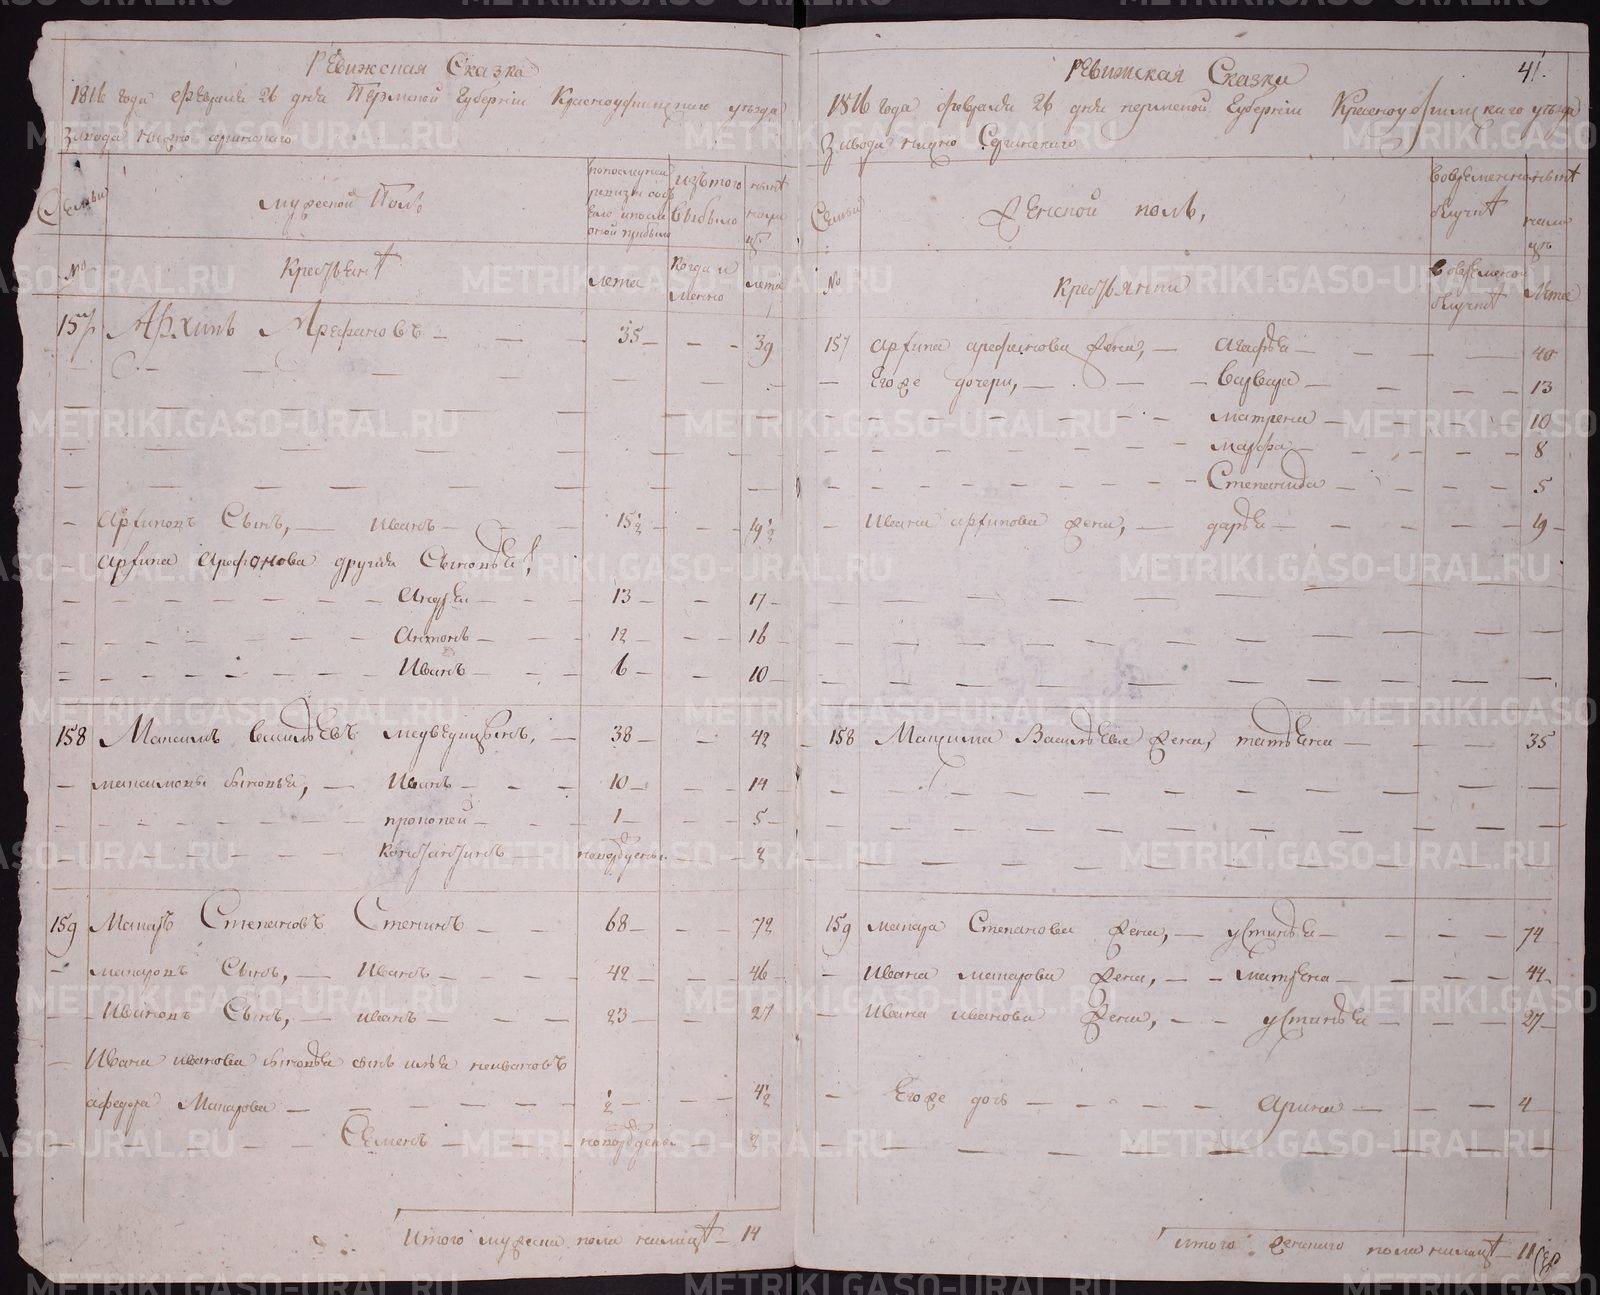 Ревижская Сказка
1816 года февраля 26 дня Пермской Губернии Красноуфимскаго уезда
Завода нижно сергинскаго
Семьи
мужеской Полъ
по последней ревизии состояло и после оной прибыло
изъ того выбыло
ныне на лицо
№
Крестьяне
лета
когда именно
лета
157 Архипъ Арефановъ — 35 — 39
Архиповъ Сынъ, — Иванъ — 15 1/2 — 19 1/2
Архипа Арефонова другия Сыновья,
Андрей — 13 — 17
Антонъ — 12 — 16
Иванъ — 6 — 10
158 Максимъ васильевъ медведицынъ, — 38 — 42
максимовы сыновья, — Иванъ — 10 — 14
прокопей — 1 — 5
Констянтинъ — новорожденъ — 2
159 Макаръ Степановъ — 68 — 72
макаровъ Сынъ, — Иванъ — 42 — 46
Ивановъ Сынъ, — иванъ — 23 — 27
Ивана иванова сыновья
афедора Макарова — 1/2 — 4 1/2
Семенъ — новорожденъ — 2
Итого мужеска пола налицо — 14
Ревижская Сказка
41.
1816 года февраля 26 дня пермской Губернии Красноуфимскаго уезда
Завода нижно Сергинскаго
Семьи
Женской полъ,
Во временной отлучке
ныне на лицо
№
Крестьянки
Во временной отлучке
Лета
157 архипа арефинова жена, — Агафья — 40
Его же дочери, — варвара — 13
матрена — 10
марфа — 8
Степанида — 5
Ивана архипова жена, — дарья — 19
158 Максима Васильева жена, татьяна — 35
159 макара Степанова жена, — устинья — 74
Ивана макарова жена, — матрена — 44
Ивана иванова жена, — устинья — 27
Его же дочь — Арина — 4
итого женскаго пола налицо — 11